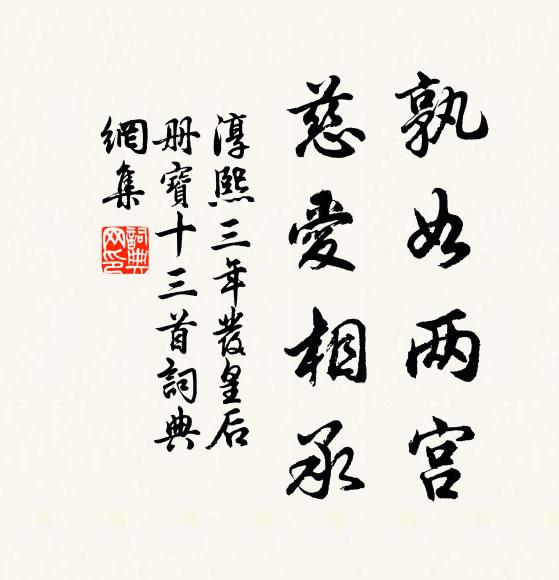 孰如两宫
慈愛相承
淳熙三年發皇后
册寶十三首詞典
網集
詞典
网印